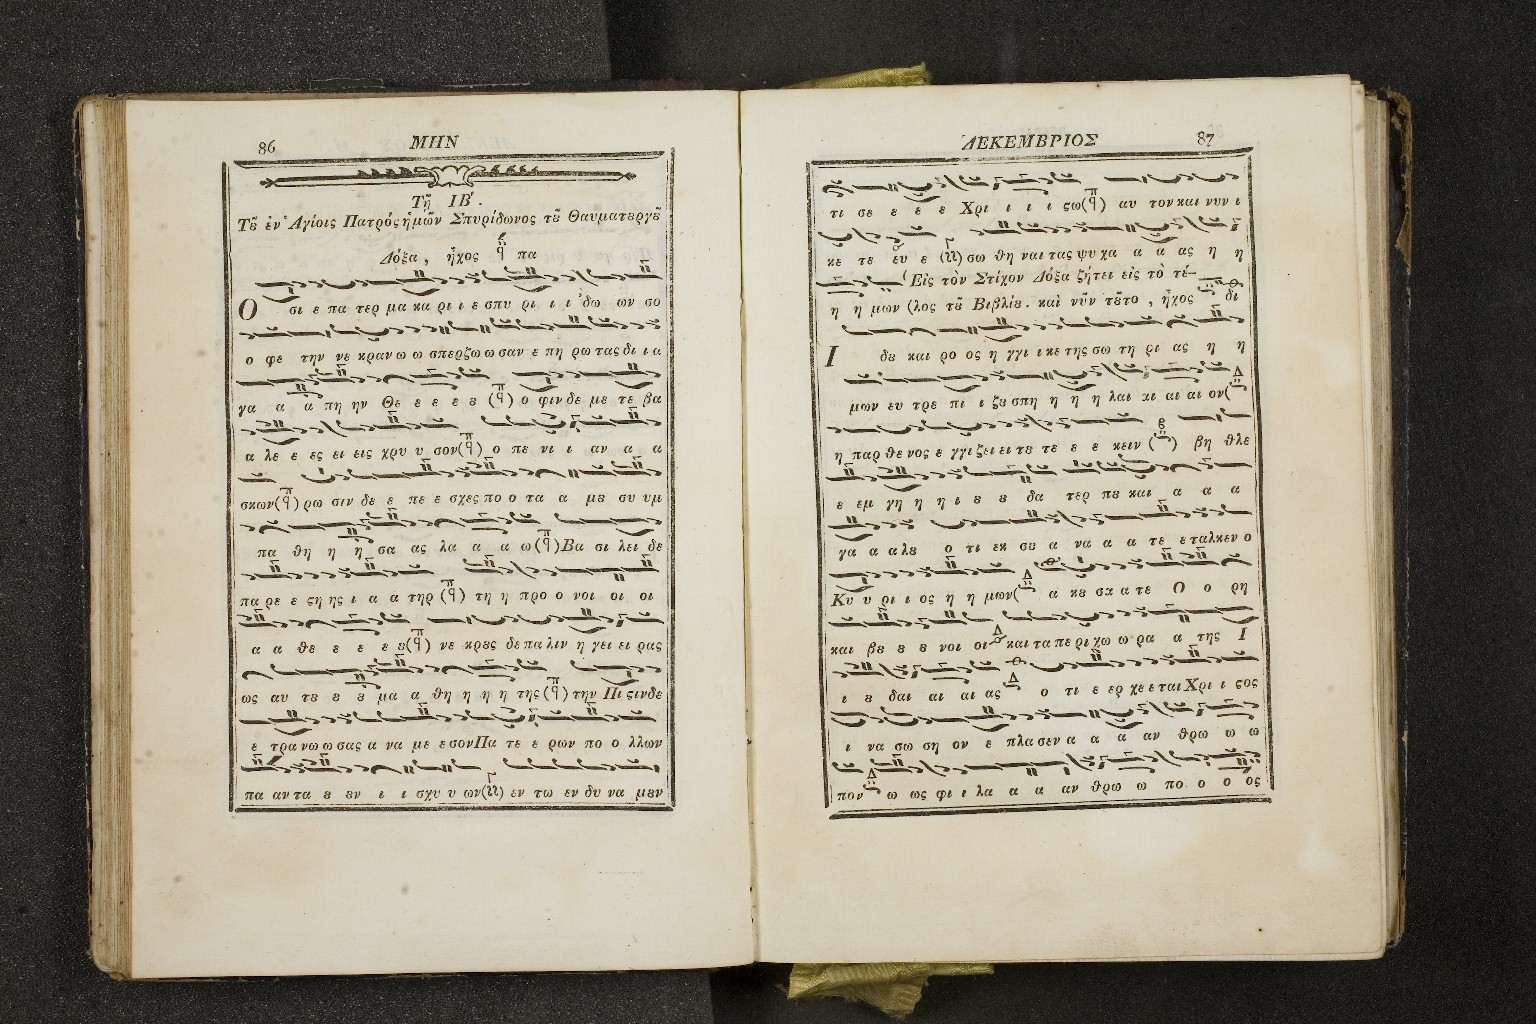 86 ΜΗΝ
Τῇ ΙΒ'.
Τȣ͂ ἐν Ἁγίοις Πατρός ἡμῶν Σπυρίδωνος τȣ͂ Θαυματȣργȣ͂
Δόξα, ἦχος πα
Ο σι ε πα τερ μα κα ρι ι ε σπυ ρι ι ι δω ων σο
ο φε την νε κραν ω ω σπερζω ω σαν ε πη ρω τας δι ι α
γα α α πη ην Θε ε ε ε ȣ ο φιν δε με τε βα
α λε ε ες ει εις χρυ υ σον ο πε νι ι αν α α
σκων ρω σιν δε ε πε ε σχες πο ο τα α μȣ συ υμ
πα θη η η σα ας λα α α ω Βα σι λει δε
πα ρε ε ςη ης ι α α τηρ τη η προ ο νοι οι οι
α α θε ε ε ε ȣ νε κρȣς δε πα λιν η γει ει ρας
ως αυ τȣ ȣ ȣ μα α θη η η η της την Πι ςιν δε
ε τρα νω ω σας α να με ε σον Πα τε ε ρων πο ο λλων
πα αν τα ȣ ȣν ι ι σχυ υ ων εν τω εν δυ να μȣν
ΔΕΚΕΜΒΡΙΟΣ 87
τι σε ε ε ε Χρι ι ι ι ςω αυ τον και νυν ι
κε τε ευ ε σω θη ναι τας ψυ χα α α ας η η
η η μων (λος τȣ͂ Βιβλίȣ. καὶ νῦν τȣ͂το, ἦχος δι
Εἰς τὸν Στίχον Δόξα ζήτει εἰς τὸ τέ-
Ι δȣ και ρο ος η γγι ι κε της σω τη ρι ας η η
μων ευ τρε πι ι ζȣ σπη η η η λαι αι αι αι ον
η παρ θε νος ε γγι ζει ει τȣ τε ε ε κειν βη θλε
ε εμ γη η η ι ȣ ȣ δα τερ πȣ και α α α
γα α α λȣ ο τι εκ σȣ α να α α τε ε ταλκεν ο
Κυ υ ρι ι ος η η μων α κȣ σα α τε Ο ο ρη
και βȣ ȣ ȣ νοι οι και τα πε ρι χω ω ρα α της Ι
ι ȣ δαι αι αι ας ο τι ε ερ χε ε ται Χρι ι ςος
ι να σω ση ον ε πλα σεν α α α αν θρω ω ω
πον ω ως φι ι λα α α αν θρω ω πο ο ο ος